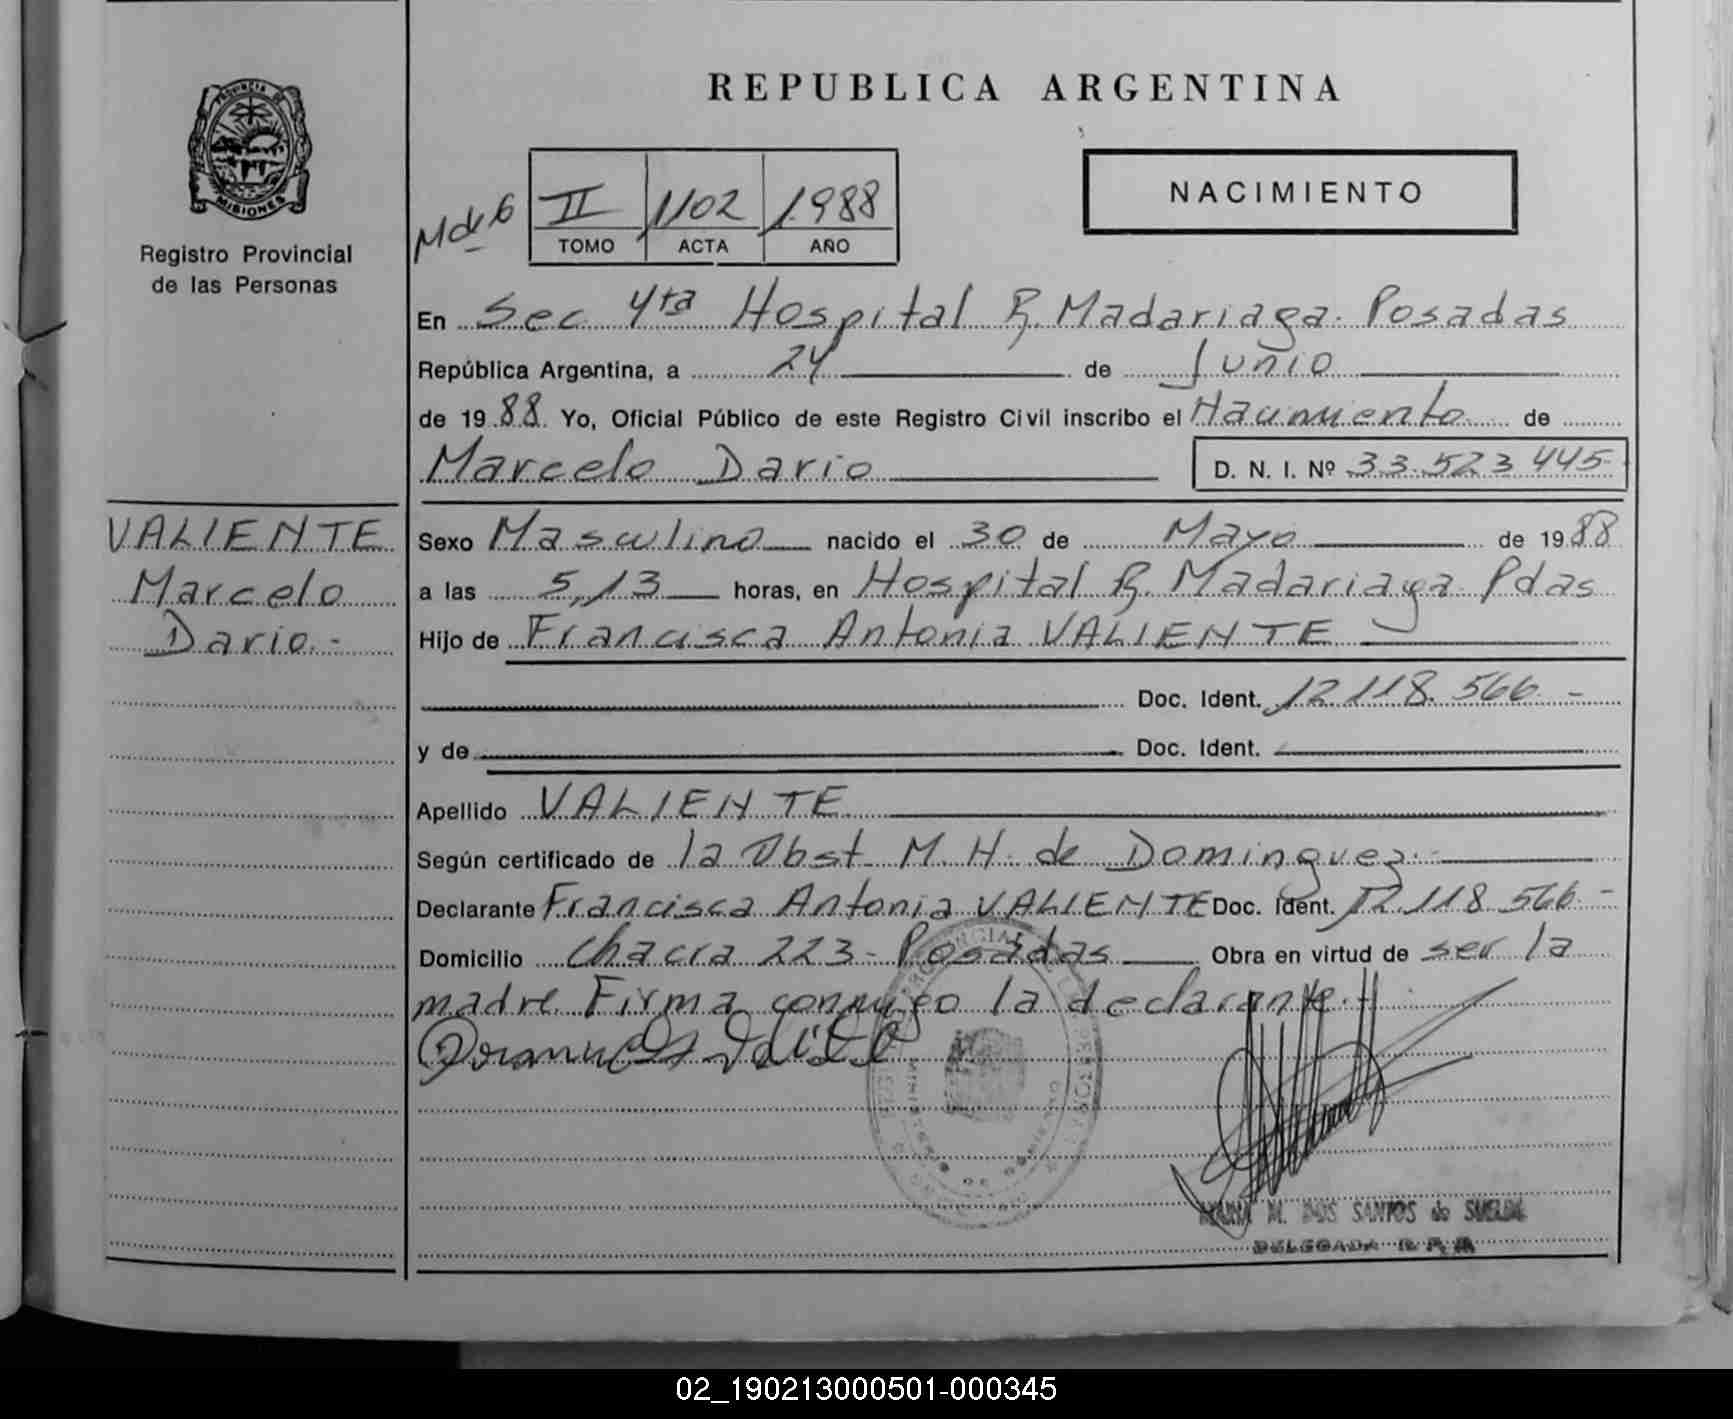 REPUBLICA ARGENTINA
PROVINCIA DE
MISIONES
Registro Provincial
de las Personas
NACIMIENTO
II 1102 1988
TOMO ACTA AÑO
En Sec 4ta Hospital R. Madariaga. Posadas
República Argentina, a 24 de Junio
de 19 88. Yo, Oficial Público de este Registro Civil inscribo el Nacimiento de
Marcelo Dario D. N. I. Nº 33.523.445
VALIENTE
Marcelo
Dario.-
Sexo Masculino nacido el 30 de Mayo de 19 88
a las 5,13 horas, en Hospital R. Madariaga Pdas
Hijo de Francisca Antonia VALIENTE
Doc. Ident. 12.118.566.-
y de Doc. Ident.
Apellido VALIENTE
Según certificado de la Obst. M. H. de Dominguez.-
Declarante Francisca Antonia VALIENTE Doc. Ident. 12.118.566-
Domicilio chacra 223- Posadas Obra en virtud de ser la
madre. Firma conmigo la declarante.-
M. DOS SANTOS de
DELEGADA R. P.
02_190213000501-000345